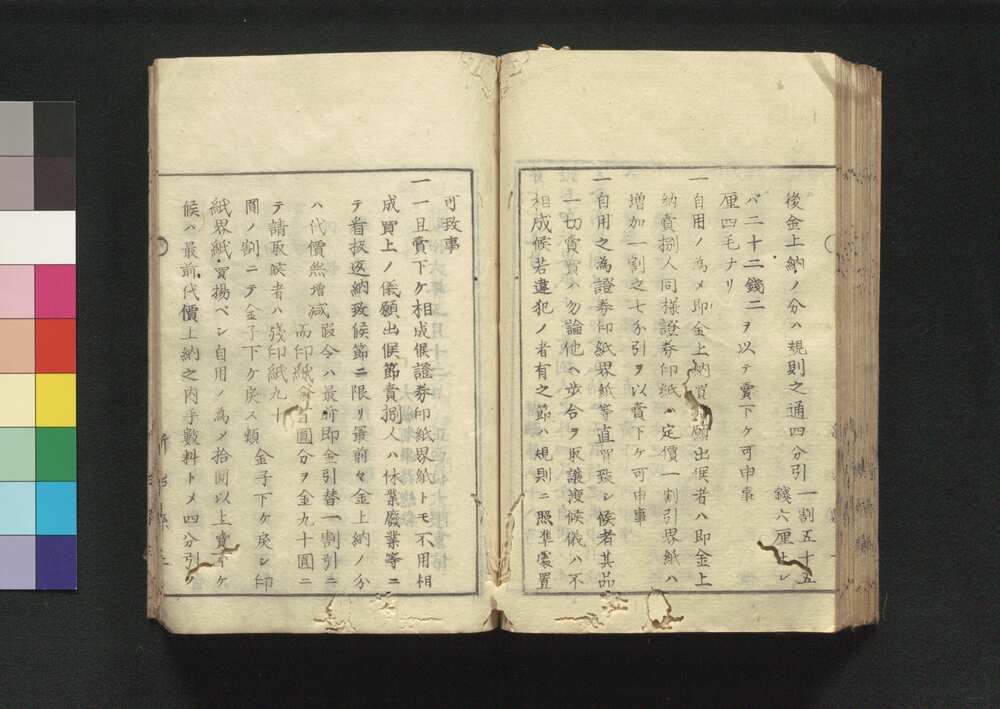 後金上納ノ分ハ規則之通四分引一割五十五
錢六厘止シ
バ二十二錢二ヲ以テ賣下ケ可申事
厘四毛ナリ
一自用ノ為メ即金上納買願出候者ハ即金上
納賣捌人同樣證券印紙ハ定價一割引界紙ハ
增加一割之七分引ヲ以賣下ケ可申事
一自用之為證券印紙界紙等直買致シ候者其品
一切賣買ハ勿論他ヘ歩合ヲ取讓渡候儀ハ不
相成候若違犯ノ者有之節ハ規則ニ照準處置
可致事
一一旦賣下ケ相成候證券印紙界紙トモ不用相
成買上ノ儀願出候節賣捌人ハ休業廢業等ニ
テ皆返納致候節ニ限リ最前々金上納ノ分
ハ代價無增減假令ハ最前即金引替一割引ニ
而印紙百圓分ヲ金九十圓ニ
テ請取候者ハ殘印紙九十
圓ノ割ニテ金子下ケ戾ス類金子下ケ戾シ印
紙界紙買揚ベシ自用ノ為メ拾圓以上賣下ケ
候ハ最前代價上納之内手數料トメ四分引ケ